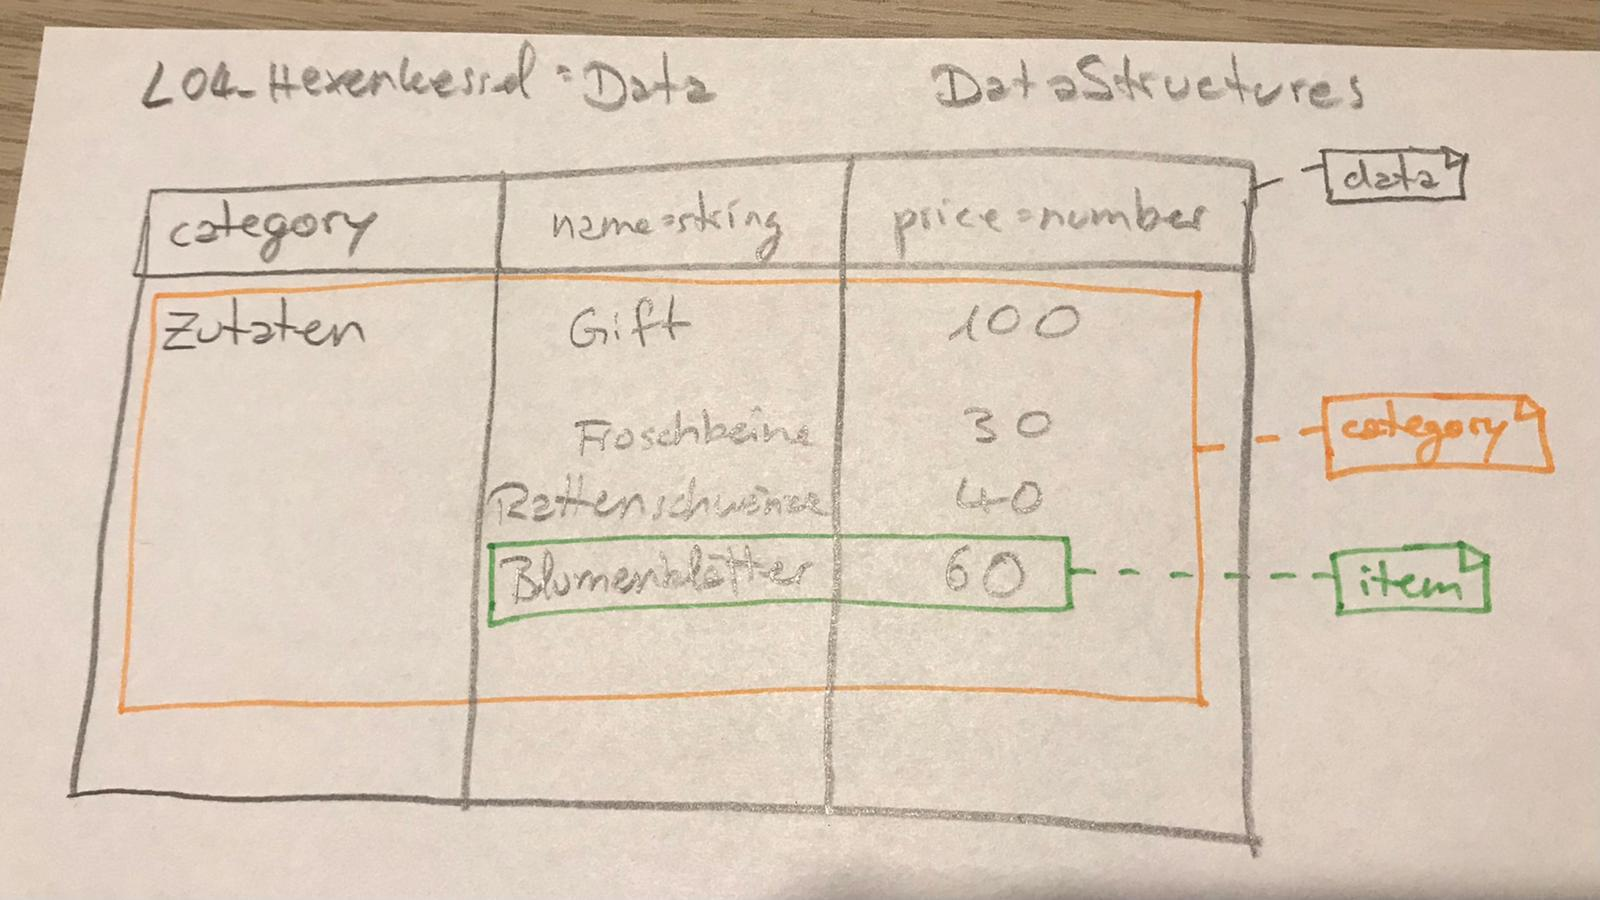 L04_Hexenkessel : Data DataStructures
data
category name:string price:number
Zutaten Gift 100
Froschbeine 30
category
Rattenschwänze 40
Blumenblätter 60 item